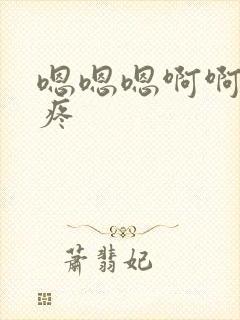 嗯嗯嗯啊啊
疼
萧翡妃